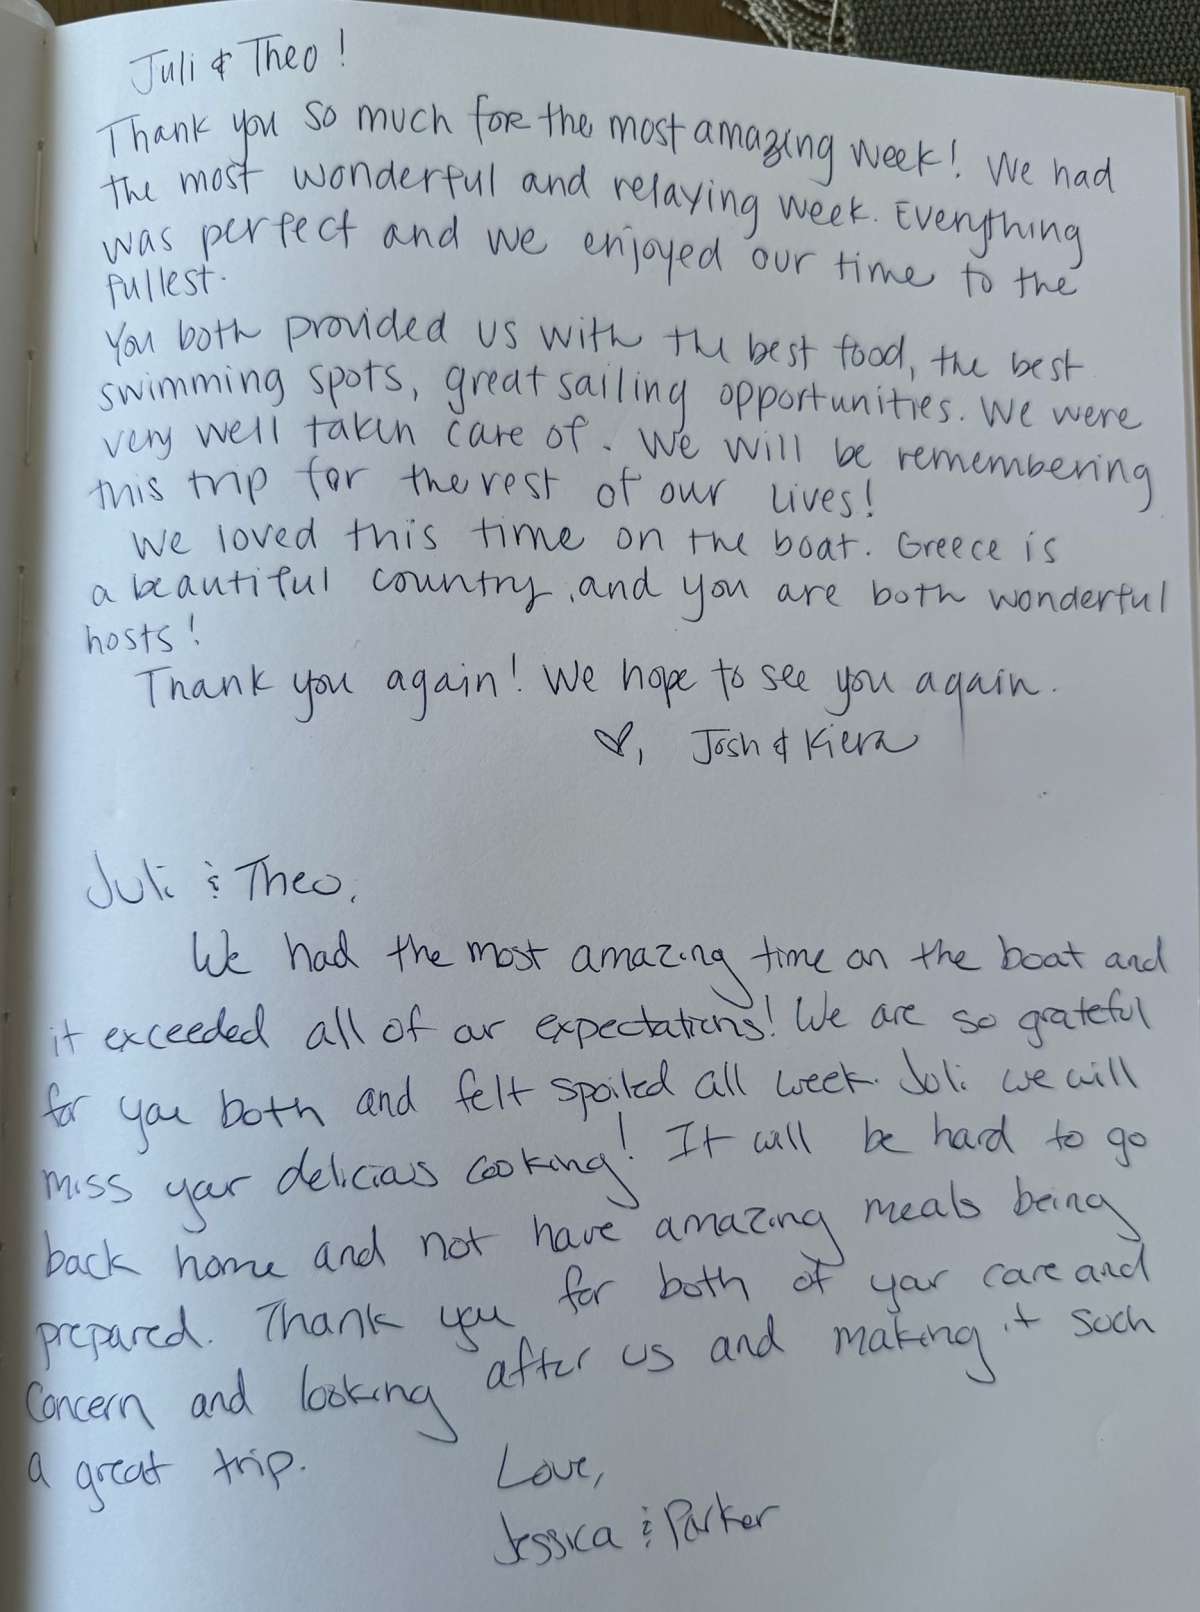 Juli & Theo!
Thank you so much for the most amazing week! We had
the most wonderful and relaxing week. Everything
was perfect and we enjoyed our time to the
fullest.
You both provided us with the best food, the best
swimming spots, great sailing opportunities. We were
very well taken care of. We will be remembering
this trip for the rest of our lives!
We loved this time on the boat. Greece is
a beautiful country, and you are both wonderful
hosts!
Thank you again! We hope to see you again.
♡, Josh & Kiera
Juli & Theo,
We had the most amazing time on the boat and
it exceeded all of our expectations! We are so grateful
for you both and felt spoiled all week. Juli we will
miss your delicious cooking! It will be hard to go
back home and not have amazing meals being
prepared. Thank you for both of your care and
concern and looking after us and making it such
a great trip.
Love,
Jessica & Parker